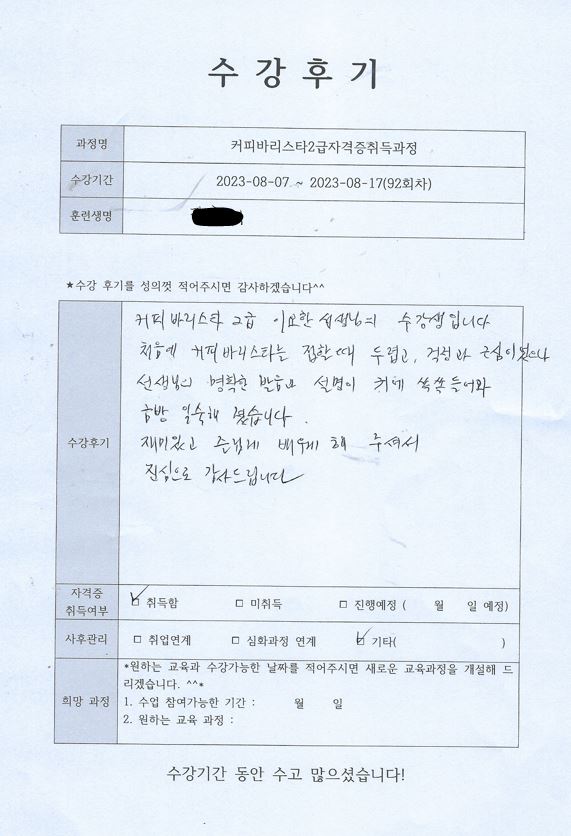 수강후기
과정명 커피바리스타2급자격증취득과정
수강기간 2023-08-07 ~ 2023-08-17(92회차)
훈련생명
★수강 후기를 성의껏 적어주시면 감사하겠습니다^^
수강후기
커피 바리스타 2급 이요한 선생님의 수강생입니다
처음에 커피바리스타는 접할때 두렵고, 걱정과 근심이 있으나
선생님의 명확한 발음과 설명이 귀에 쏙쏙 들어와
금방 익숙해 졌습니다.
재미있고 손쉽게 배우게 해 주셔서
진심으로 감사드립니다
자격증
취득여부 ☑ 취득함 □ 미취득 □ 진행예정 ( 월 일 예정)
사후관리 □ 취업연계 □ 심화과정 연계 ☑ 기타( )
희망 과정
*원하는 교육과 수강가능한 날짜를 적어주시면 새로운 교육과정을 개설해 드
리겠습니다. ^^*
1. 수업 참여가능한 기간 : 월 일
2. 원하는 교육 과정 :
수강기간 동안 수고 많으셨습니다!